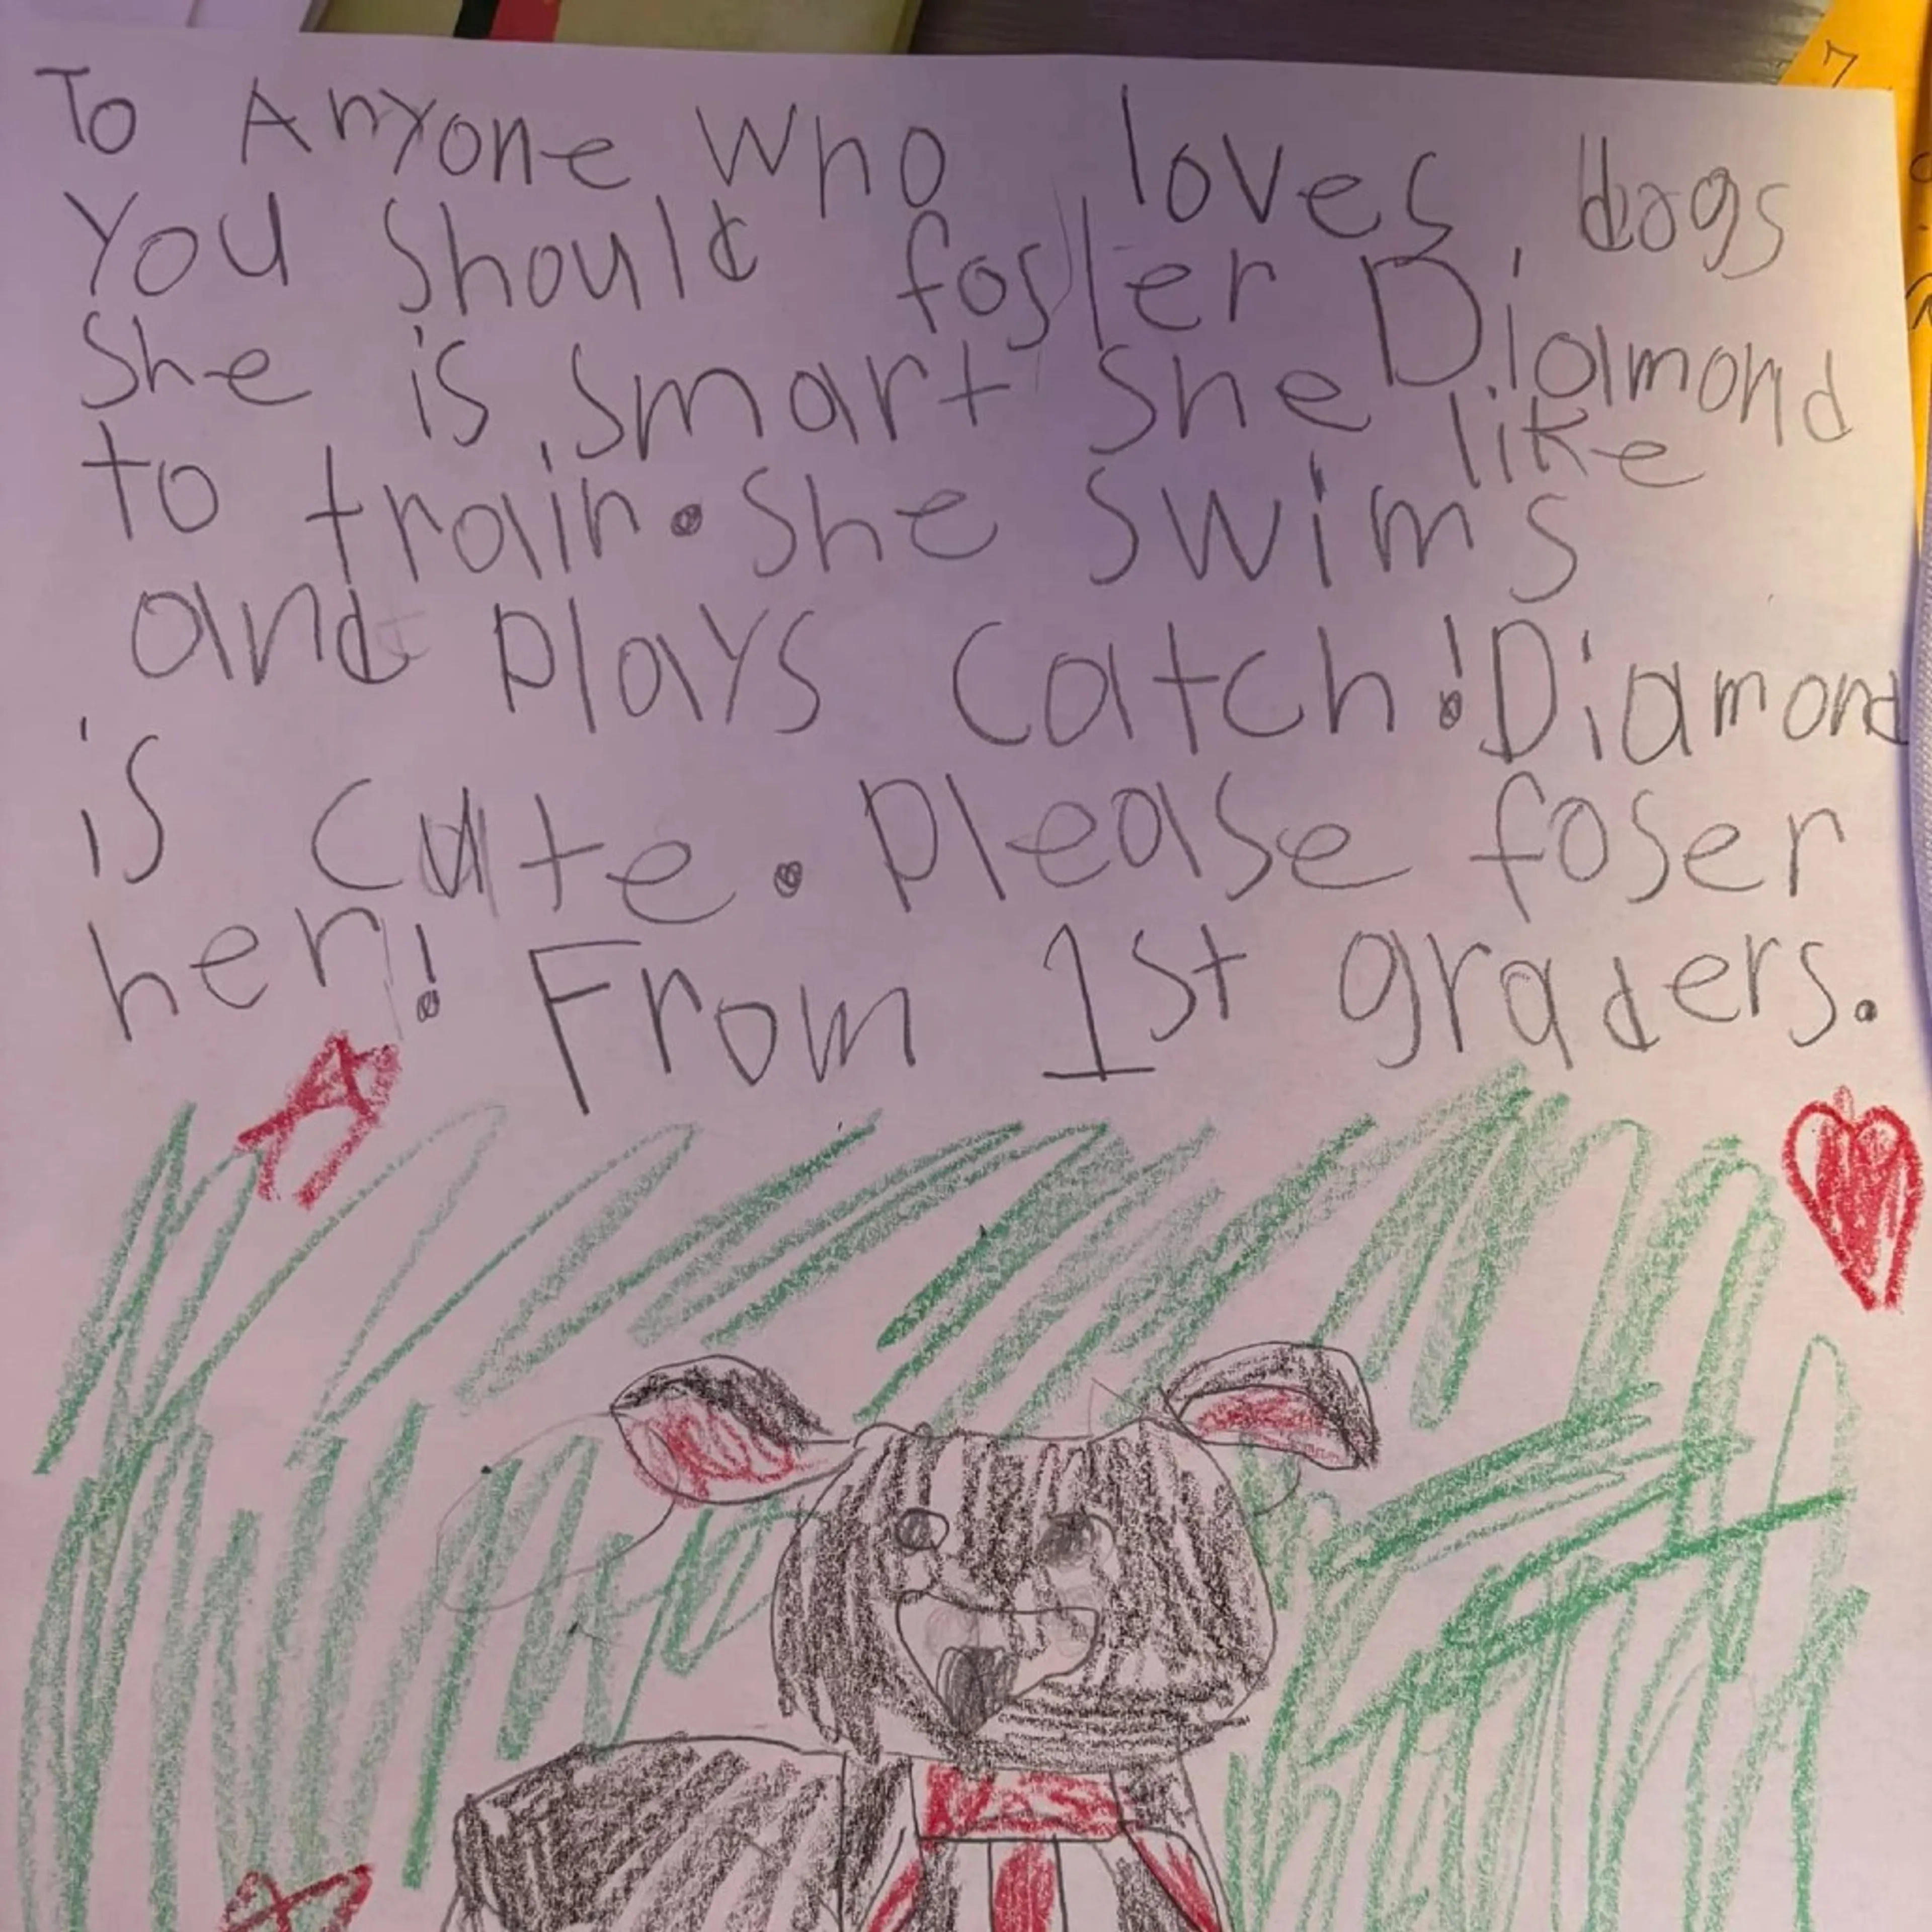 To Anyone Who loves dogs
You should foster Diamond
She is smart she like
to train. She swims
and plays catch! Diamond
is cute. please foser
her! From 1st graders.
7